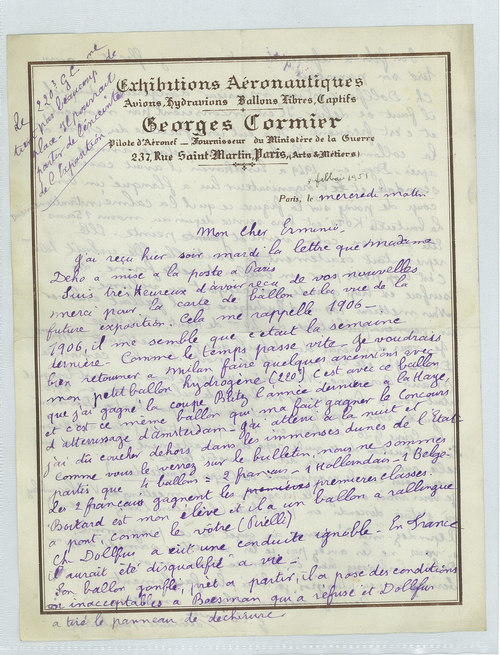 Le 220³ G.C. me
tient pas beaucoup de
place Il pourrait
partir de l'enceinte
de l'Exposition
Exhibitions Aéronautiques
Avions, Hydravions Ballons Libres, Captifs
Georges Cormier
Pilote d'Aéronef — Fournisseur du Ministère de la Guerre
237, Rue Saint-Martin, Paris, (Arts & Métiers)
1951
Paris, le mercredi matin
Mon cher Erminio.
J'ai reçu hier soir mardi la lettre que Madame
Deho a mise à la poste à Paris
Suis très Heureux d'avoir reçu de vos nouvelles
merci pour la carte de ballon et la vue de la
future exposition. Cela me rappelle 1906 —
1906, il me semble que c'était la semaine
dernière - Comme le temps passe vite - Je voudrais
bien retourner à Milan faire quelques ascensions avec
mon petit ballon hydrogène (220³) c'est avec ce ballon
que j'ai gagné la coupe Blitz l'année dernière à la Haye,
et c'est ce même ballon qui m'a fait gagner le Concours
d'atterrissage d'Amsterdam - j'ai atterri à la nuit et
j'ai dû coucher dehors dans les immenses dunes de l'Etat
Comme vous le verrez sur le bulletin, nous ne sommes
partis que 4 ballons = 2 français - 1 Hollandais - 1 Belge
Les 2 français gagnent les premières premières classes.
Boitard est mon élève et il a un ballon a rallongue
a pont, comme le vôtre (Pirelli)
Ch. Dollfus a eut une conduite ignoble. En France
il aurait été disqualifié à vie —
Son ballon gonflé, prêt à partir, il a posé des conditions
inacceptables à Boesman qui a refusé et Dollfus
a tiré le panneau de déchirure.